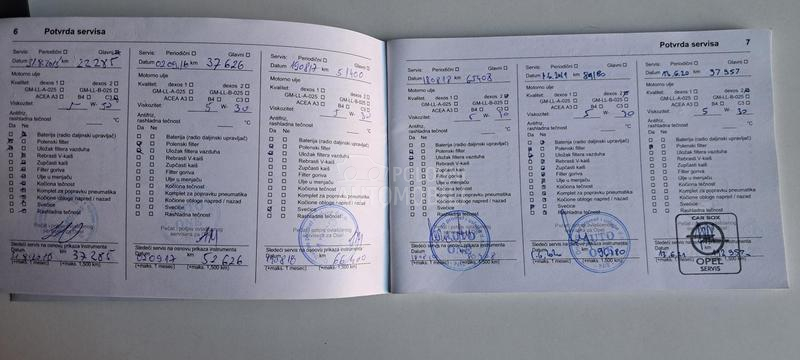 6 Potvrda servisa
Servis: Periodični Glavni
Datum km 22285
Motorno ulje
Kvalitet: dexos 1 dexos 2
GM-LL-A-025 GM-LL-B-025
ACEA A3 B4 C3
Viskozitet 5 W- 30
Antifriz,
rashladna tečnost °C
Da Ne
Baterija (radio daljinski upravljač)
Polenski filter
Uložak filtera vazduha
Rebrasti V-kaiš
Zupčasti kaiš
Filter goriva
Ulje u menjaču
Kočiona tečnost
Komplet za popravku pneumatika
Kočione obloge napred / nazad
Svećice
Rashladna tečnost
Sledeći servis na osnovu prikaza instrumenta
Datum km 37285
(+maks. 1 mesec) (+maks. 1,500 km)
Servis: Periodični Glavni
Datum km 37626
Motorno ulje
Kvalitet: dexos 1 dexos 2
GM-LL-A-025 GM-LL-B-025
ACEA A3 B4 C3
Viskozitet 5 W- 30
Antifriz,
rashladna tečnost °C
Da Ne
Baterija (radio daljinski upravljač)
Polenski filter
Uložak filtera vazduha
Rebrasti V-kaiš
Zupčasti kaiš
Filter goriva
Ulje u menjaču
Kočiona tečnost
Komplet za popravku pneumatika
Kočione obloge napred / nazad
Svećice
Rashladna tečnost
Sledeći servis na osnovu prikaza instrumenta
Datum 050917 km 52626
(+maks. 1 mesec) (+maks. 1,500 km)
Servis: Periodični Glavni
Datum 190817 km 51400
Motorno ulje
Kvalitet: dexos 1 dexos 2
GM-LL-A-025 GM-LL-B-025
ACEA A3 B4 C3
Viskozitet 5 W- 30
Antifriz,
rashladna tečnost °C
Da Ne
Baterija (radio daljinski upravljač)
Polenski filter
Uložak filtera vazduha
Rebrasti V-kaiš
Zupčasti kaiš
Filter goriva
Ulje u menjaču
Kočiona tečnost
Komplet za popravku pneumatika
Kočione obloge napred / nazad
Svećice
Rashladna tečnost
Sledeći servis na osnovu prikaza instrumenta
Datum 190818 km 66400
(+maks. 1 mesec) (+maks. 1,500 km)
Potvrda servisa 7
Servis: Periodični Glavni
Datum 180818 km 65408
Motorno ulje
Kvalitet: dexos 1 dexos 2
GM-LL-A-025 GM-LL-B-025
ACEA A3 B4 C3
Viskozitet 5 W- 30
Antifriz,
rashladna tečnost °C
Da Ne
Baterija (radio daljinski upravljač)
Polenski filter
Uložak filtera vazduha
Rebrasti V-kaiš
Zupčasti kaiš
Filter goriva
Ulje u menjaču
Kočiona tečnost
Komplet za popravku pneumatika
Kočione obloge napred / nazad
Svećice
Rashladna tečnost
Sledeći servis na osnovu prikaza instrumenta
Datum km
(+maks. 1 mesec) (+maks. 1,500 km)
Servis: Periodični Glavni
Datum km 89180
Motorno ulje
Kvalitet: dexos 1 dexos 2
GM-LL-A-025 GM-LL-B-025
ACEA A3 B4 C3
Viskozitet 5 W- 30
Antifriz,
rashladna tečnost °C
Da Ne
Baterija (radio daljinski upravljač)
Polenski filter
Uložak filtera vazduha
Rebrasti V-kaiš
Zupčasti kaiš
Filter goriva
Ulje u menjaču
Kočiona tečnost
Komplet za popravku pneumatika
Kočione obloge napred / nazad
Svećice
Rashladna tečnost
Sledeći servis na osnovu prikaza instrumenta
Datum km
(+maks. 1 mesec) (+maks. 1,500 km)
Servis: Periodični Glavni
Datum km 97957
Motorno ulje
Kvalitet: dexos 1 dexos 2
GM-LL-A-025 GM-LL-B-025
ACEA A3 B4 C3
Viskozitet 5 W- 30
Antifriz,
rashladna tečnost °C
Da Ne
Baterija (radio daljinski upravljač)
Polenski filter
Uložak filtera vazduha
Rebrasti V-kaiš
Zupčasti kaiš
Filter goriva
Ulje u menjaču
Kočiona tečnost
Komplet za popravku pneumatika
Kočione obloge napred / nazad
Svećice
Rashladna tečnost
CAR BOX
OPEL
SERVIS
Sledeći servis na osnovu prikaza instrumenta
Datum km
(+maks. 1 mesec) (+maks. 1,500 km)